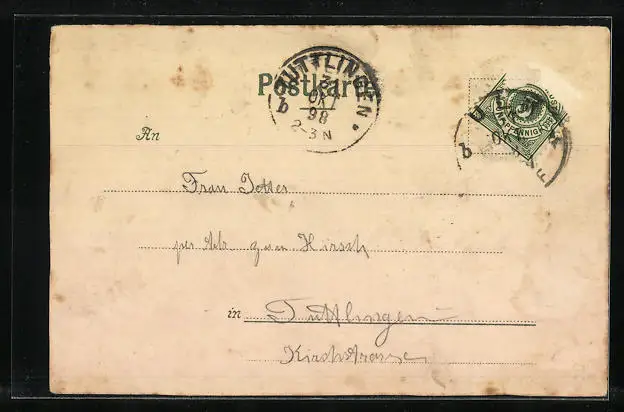 Postkarte
TUTTLINGEN
31
OKT
98
2-3 N
b
b
FÜNF PFENNIG
An
Frau Jetter
per Adr. zum Hirsch
in Tuttlingen
Kirchstrasse